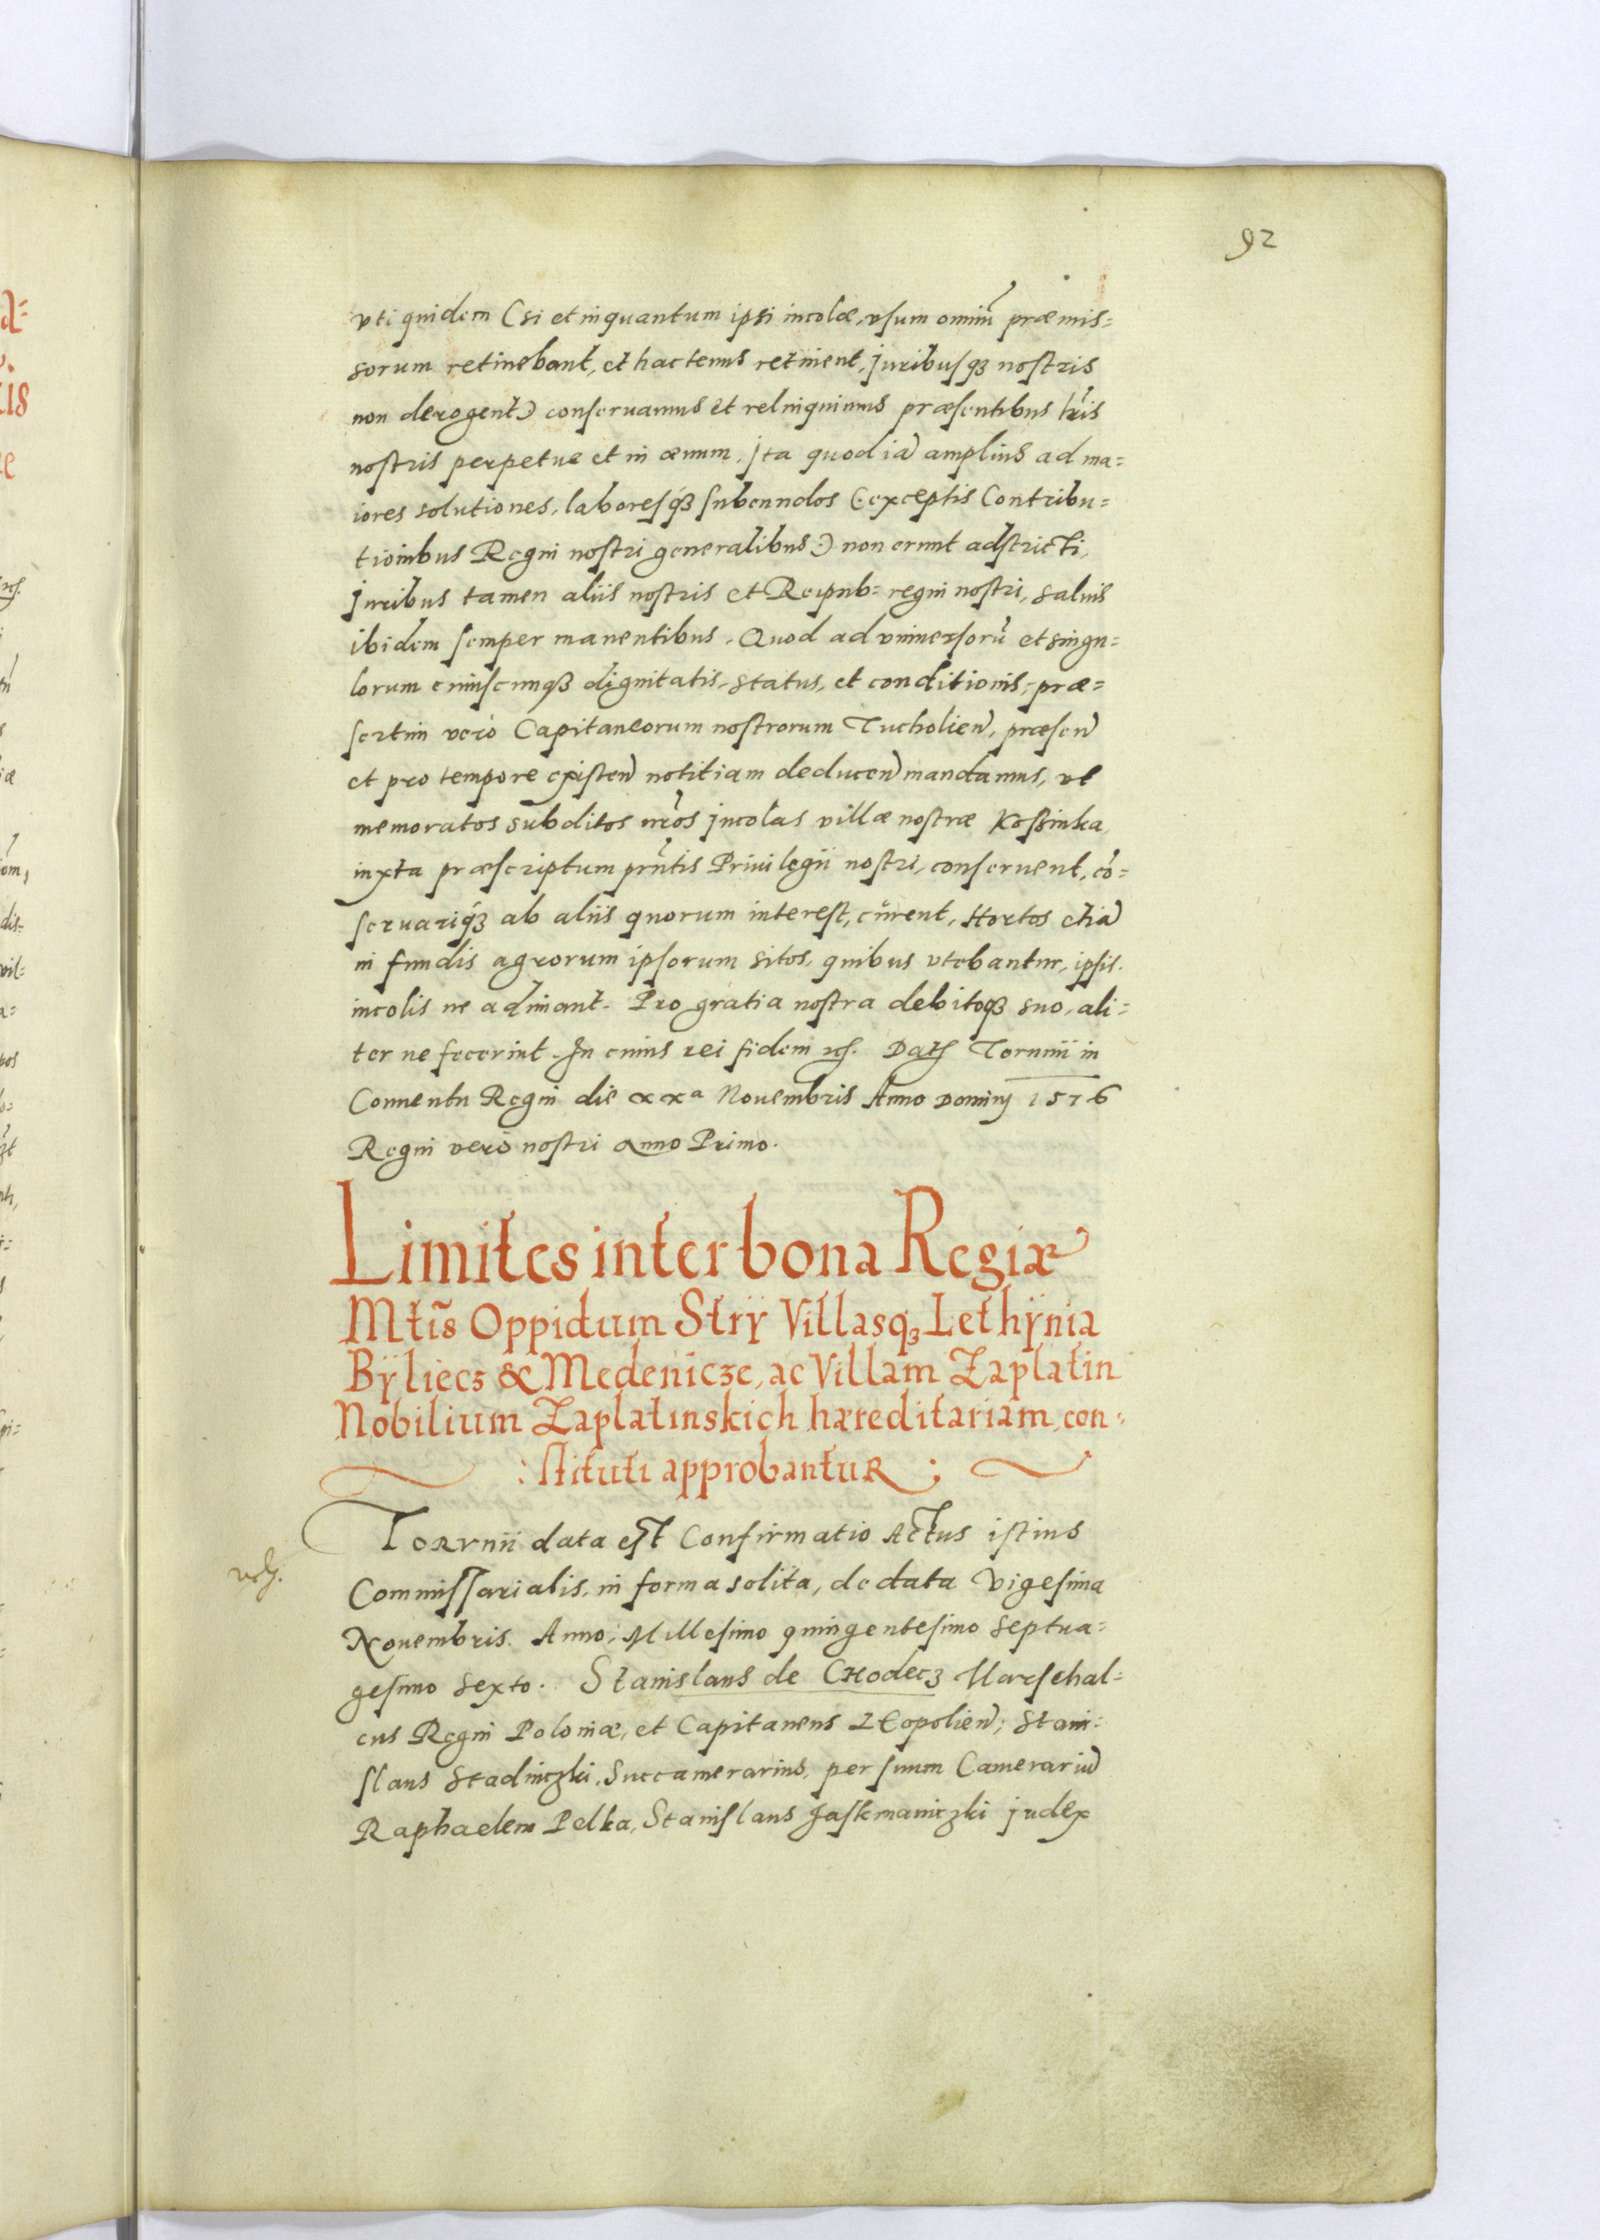 92
vti quidem (si et inquantum ipsi incolæ, vsum omniũ præmis=
sorum retinebant, et hactenus retinent, Juribusqȝ nostris
non derogent) conseruamus et relinquimus præsentibus lr̃is
nostris perpetue et in æuum. Jta quod iã amplius ad ma=
iores solutiones, laboresqȝ subeundos (:exceptis Contribu=
tionibus Regni nostri generalibus:) non erunt adstricti,
Juribus tamen aliis nostris et Reipub= regni nostri, saluis
ibidem semper manentibus. Quod ad vniuersorũ et singu=
lorum cuiuscunqȝ dignitatis, status, et conditionis, præ=
sertim verò Capitaneorum nostrorum Tucholien̄, præsen̄
et pro tempore existen̄ notitiam deducen̄ mandamus, vt
memoratos subditos nr̃os Jncolas villæ nostræ Kossinka,
iuxta præscriptum prn̄tis Priuilegii nostri, conseruent, cō=
seruariqȝ ab aliis quorum interest, curent, Hortos etiā
in fundis agrorum ipsorum sitos, quibus vtebantur, ipsis
incolis ne adimant. Pro gratia nostra debitoqȝ suo, ali=
ter ne fecerint. In cuius rei fidem etc. Datȝ Torunii in
Conuentu Regni die xxª Nouembris Anno Dominj 1576
Regni verò nostri anno Primo.
Limites inter bona Regiæ
Mtĩs Oppidum Stry Villasqȝ Lethÿnia
Bÿliecz & Medenicze, ac Villam Zaplatin
Nobilium Zaplatinskich hæreditariam, con=
:stituti approbantur;
Torvnii data est Confirmatio Actus istius
Commissarialis, in forma solita, de data Vigesima
Nouembris. Anno, Millesimo quingentesimo septua=
gesimo sexto. Stanislaus de CHodecz Marschal=
cus Regni Poloniæ, et Capitaneus Leopolien̄; Stani=
slaus Stadniczki, Succamerarius, per suum Camerariũ
Raphaelem Pelka, Stanislaus Jaskmaniczki judex